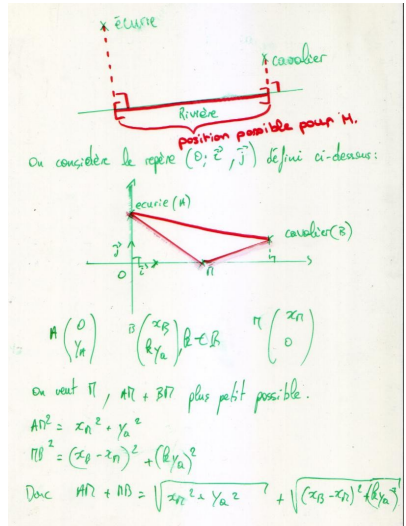 écurie
cavalier
Rivière
position possible pour M.
On considère le repère (O; i⃗, j⃗) défini ci-dessus:
ecurie (A)
cavalier (B)
j⃗
O
i⃗
M
A (0 / yA)  B (xB / kya), k ∈ ℝ  M (xM / 0)
on veut M, AM + BM plus petit possible.
AM² = xM² + ya²
MB² = (xB - xM)² + (kya)²
Donc AM + MB = √(xM² + ya²) + √((xB - xM)² + (kya)²)